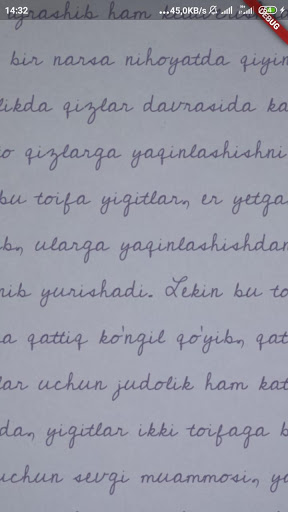 14:32 ...45,0KB/s 54
DEBUG
ajrashib ham
bir narsa nihoyatda qiyin
likda qizlar davrasida ka
o qizlarga yaqinlashishni
bu toifa yigitlar, er yetga
b, ularga yaqinlashishdan
nib yurishadi. Lekin bu to
a qattiq ko'ngil qo'yib, qat
lar uchun judolik ham kat
da, yigitlar ikki toifaga b
uchun sevgi muammosi, ya